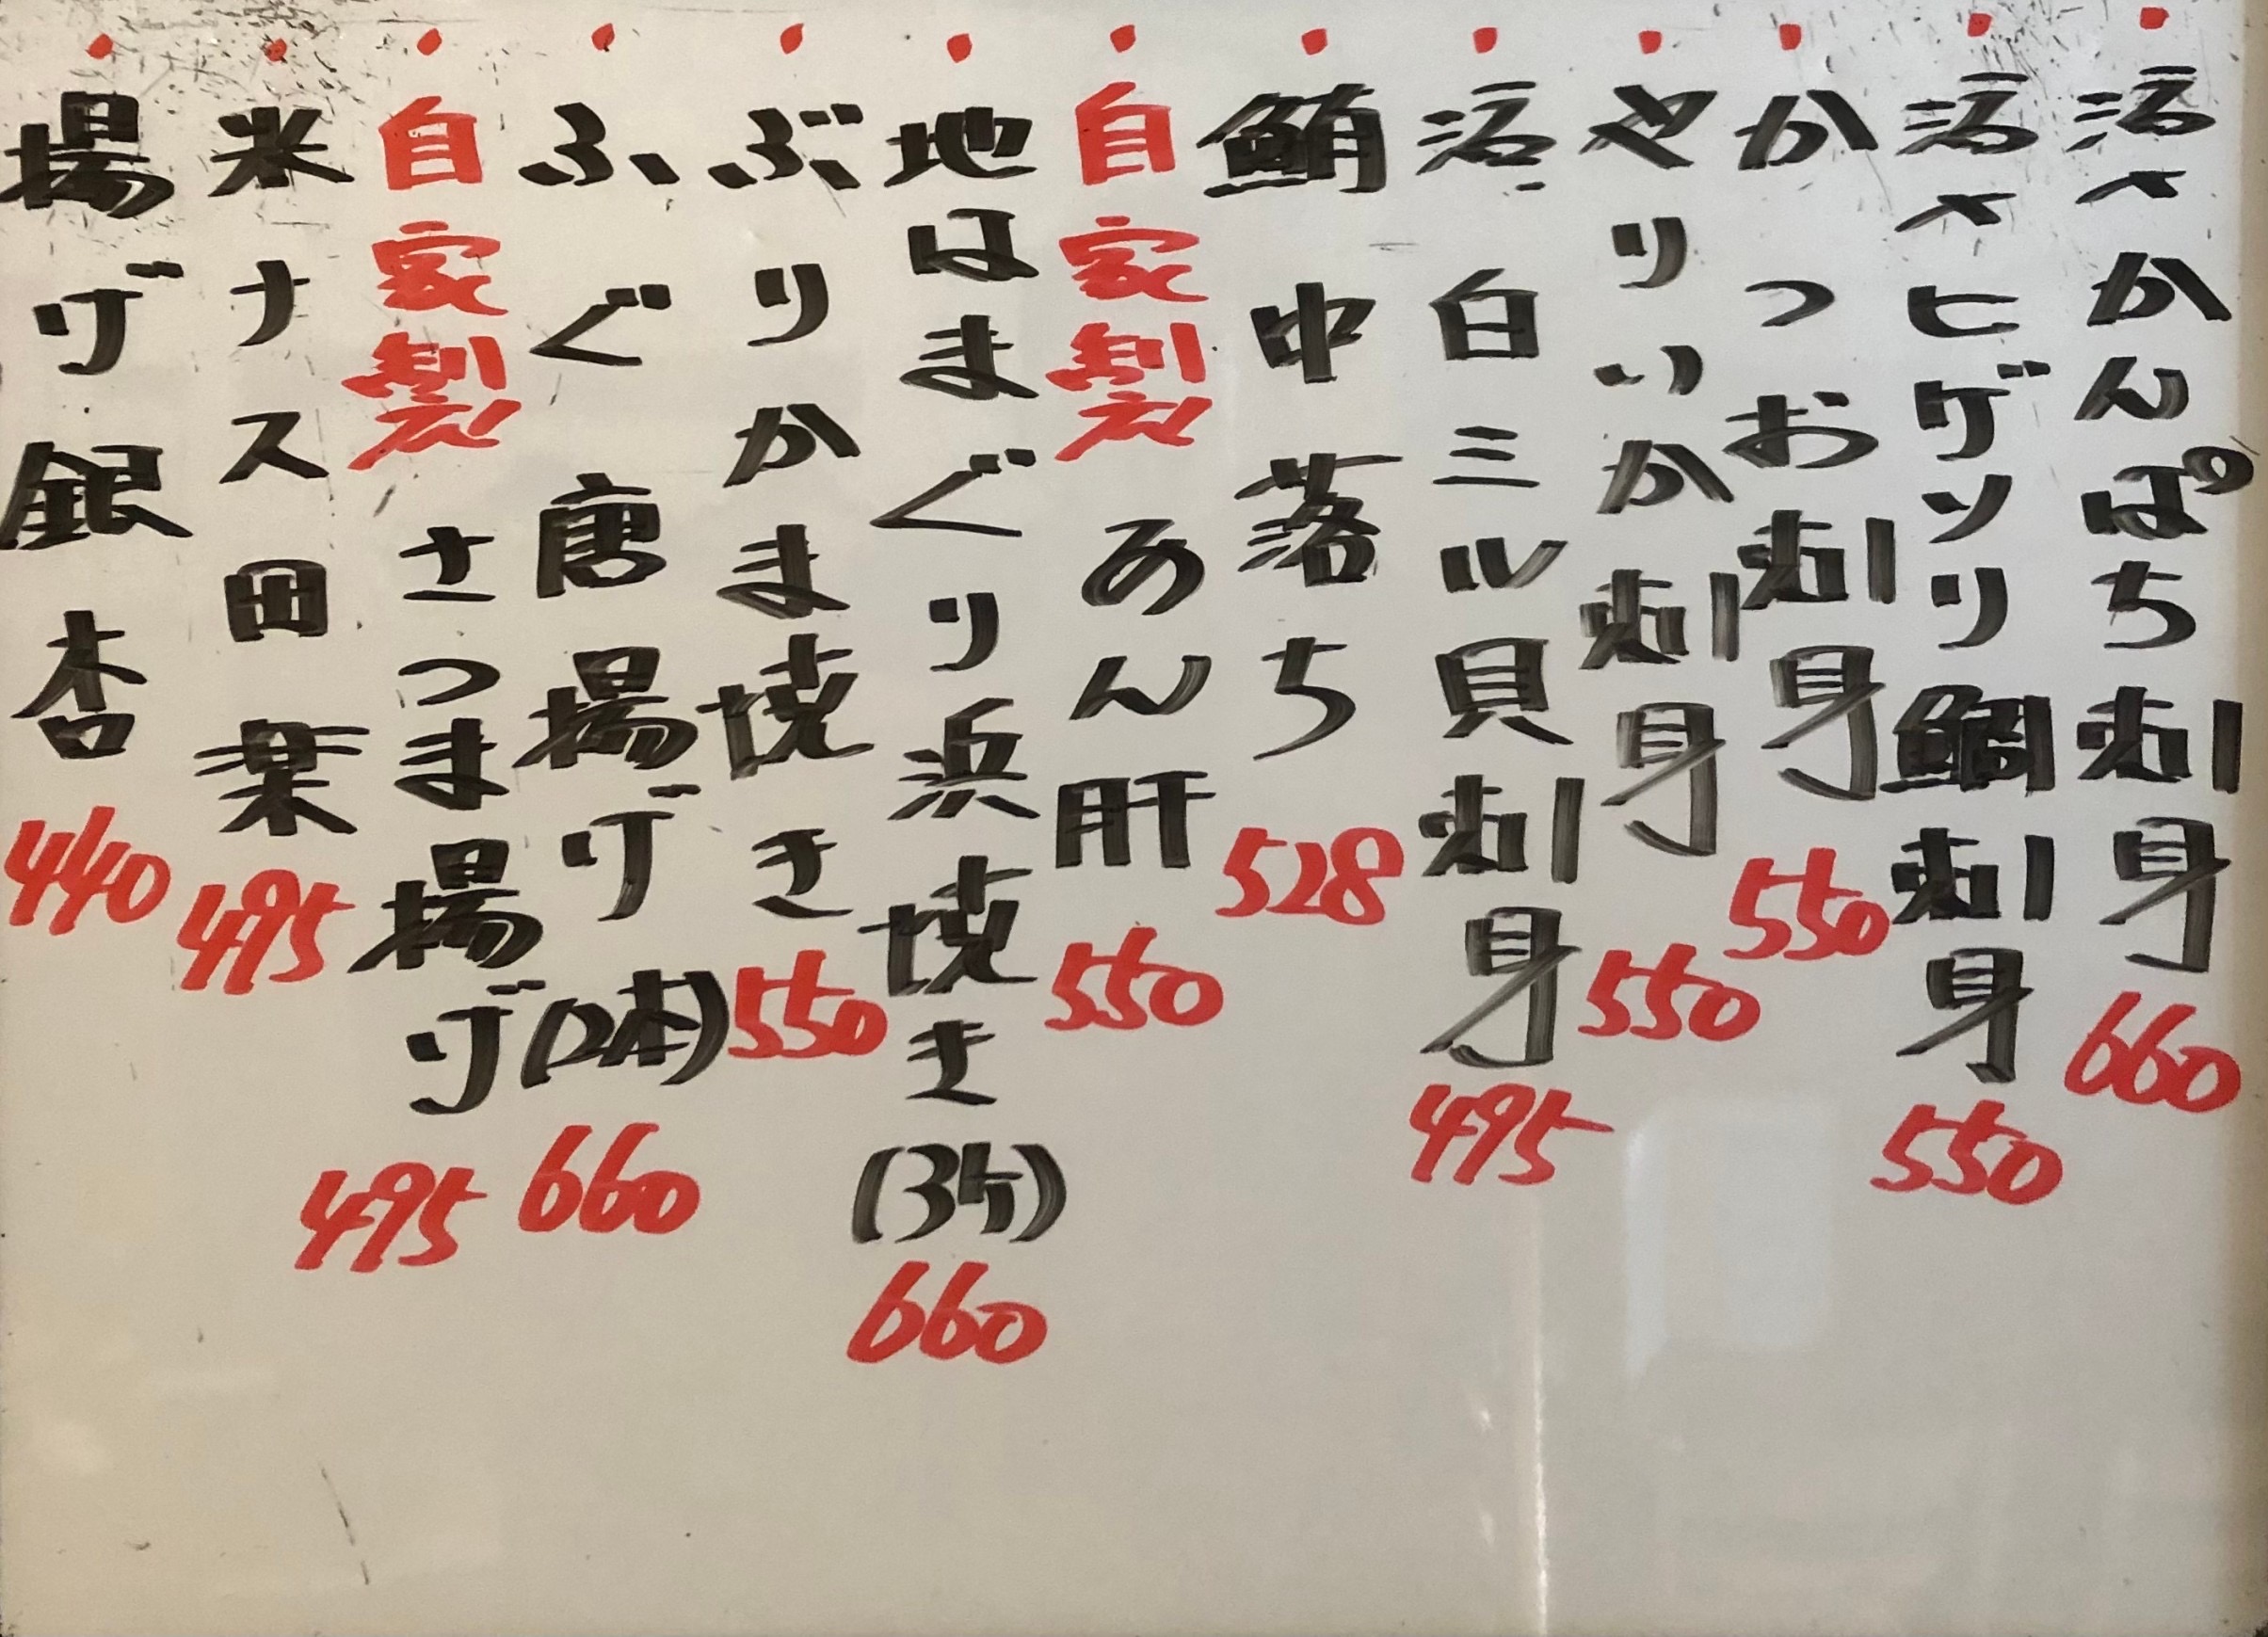 活〆かんぱち刺身 660
活〆ヒゲソリ鯛刺身 550
かつお刺身 550
やりいか刺身 550
活白ミル貝刺身 495
鮪中落ち 528
自家製あん肝 550
地はまぐり浜焼き(3ケ) 660
ぶりかま焼き 550
ふぐ唐揚げ(2本) 660
自家製さつま揚げ 495
米ナス田楽 495
揚げ銀杏 440